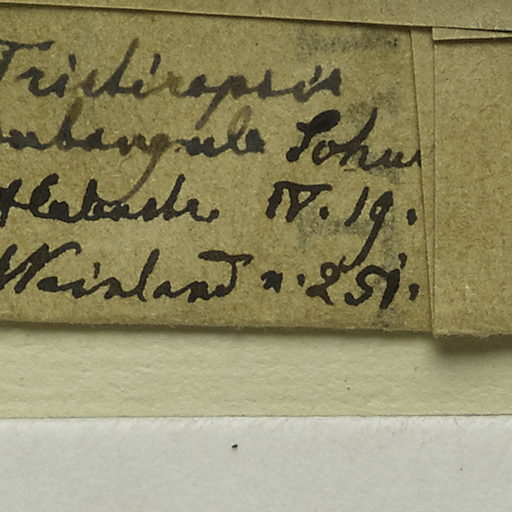 Tristiropsis
subangula Schu
Alabastr. IV. 19.
Weinland n. 251.